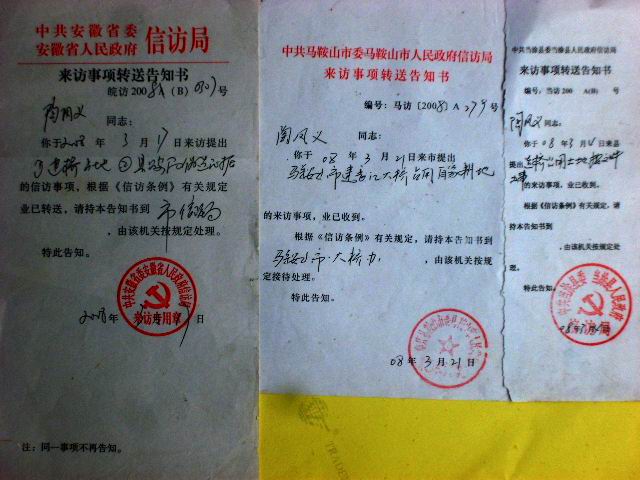 中共安徽省委
安徽省人民政府 信访局
来访事项转送告知书
皖访 2008 (B) 号
同志：
你于2008年3月17日来访提出
的信访事项，根据《信访条例》有关规定
业已转送，请持本告知书到 市信局
，由该机关按规定处理。
特此告知。
中共安徽省委安徽省人民政府信访局
来访专用章
2008年 日
注：同一事项不再告知。
中共马鞍山市委马鞍山市人民政府信访局
来访事项转送告知书
编号：马访 [2008] A 279号
陶凤义 同志：
你于 08年3月21日来市提出
马鞍山市建长江大桥占用自家耕地
的来访事项，业已收到。
根据《信访条例》有关规定，请持本告知书到
马鞍山市大桥办 ，由该机关按规
定接待处理。
特此告知。
08年3月21日
中共当涂县委当涂县人民政府信访局
来访事项转送告知书
编号：当访 200 A(B) 号
陶凤义 同志：
你于08年3月4日来县
提出
的来访事项，业已收到。
根据《信访条例》有关规定，请
持本告知书到
，由该机关按规定处
理。
特此告知。
信访局